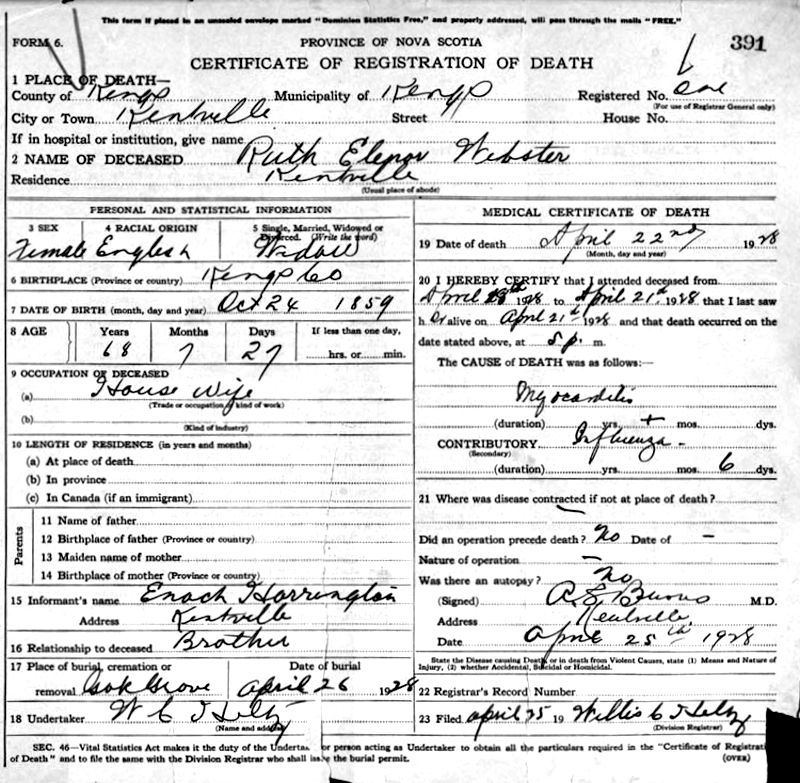 This form if placed in an unsealed envelope marked "Dominion Statistics Free," and properly addressed, will pass through the mails "FREE."
FORM 6.
PROVINCE OF NOVA SCOTIA
391
CERTIFICATE OF REGISTRATION OF DEATH
1 PLACE OF DEATH—
County of Kings Municipality of Kings Registered No. One
(For use of Registrar General only)
City or Town Kentville Street House No.
If in hospital or institution, give name
2 NAME OF DECEASED Ruth Elenor Webster
Residence Kentville
(Usual place of abode)
PERSONAL AND STATISTICAL INFORMATION
3 SEX 4 RACIAL ORIGIN 5 Single, Married, Widowed or Divorced. (Write the word)
Female English Widow
6 BIRTHPLACE (Province or country) Kings Co
7 DATE OF BIRTH (month, day and year) Oct 24 1859
8 AGE Years Months Days If less than one day,
68 7 27 hrs. or min.
9 OCCUPATION OF DECEASED
(a) House Wife
(Trade or occupation of kind of work)
(b)
(Kind of industry)
10 LENGTH OF RESIDENCE (in years and months)
(a) At place of death
(b) In province
(c) In Canada (if an immigrant)
Parents
11 Name of father
12 Birthplace of father (Province or country)
13 Maiden name of mother
14 Birthplace of mother (Province or country)
15 Informant's name Enoch Harrington
Address Kentville
16 Relationship to deceased Brother
17 Place of burial, cremation or Date of burial
removal Oak Grove April 26 1928
18 Undertaker W C
(Name and address)
MEDICAL CERTIFICATE OF DEATH
19 Date of death April 22nd 1928
(Month, day and year)
20 I HEREBY CERTIFY that I attended deceased from
April 1928 to April 21st 1928 that I last saw
h er alive on April 21st 1928 and that death occurred on the
date stated above, at p. m.
The CAUSE of DEATH was as follows:—
Myocarditis
(duration) yrs. + mos. dys.
CONTRIBUTORY Influenza -
(Secondary)
(duration) yrs. mos. 6 dys.
21 Where was disease contracted if not at place of death?
—
Did an operation precede death? No Date of -
Nature of operation -
Was there an autopsy? No
(Signed) A E Burns M.D.
Address Kentville
Date April 25th 1928
State the Disease causing Death, or in death from Violent Causes, state (1) Means and Nature of
Injury, (2) whether Accidental, Suicidal or Homicidal.
22 Registrar's Record Number
23 Filed April 25 19 Willis C
(Division Registrar)
SEC. 46—Vital Statistics Act makes it the duty of the Undertak or person acting as Undertaker to obtain all the particulars required in the "Certificate of Registrati
of Death" and to file the same with the Division Registrar who shall issue the burial permit.
(OVER)